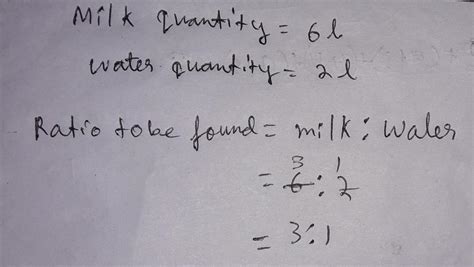 Milk quantity = 6 l
water quantity = 2 l
Ratio to be found = milk : water
3 1
= 6 : 2
= 3 : 1